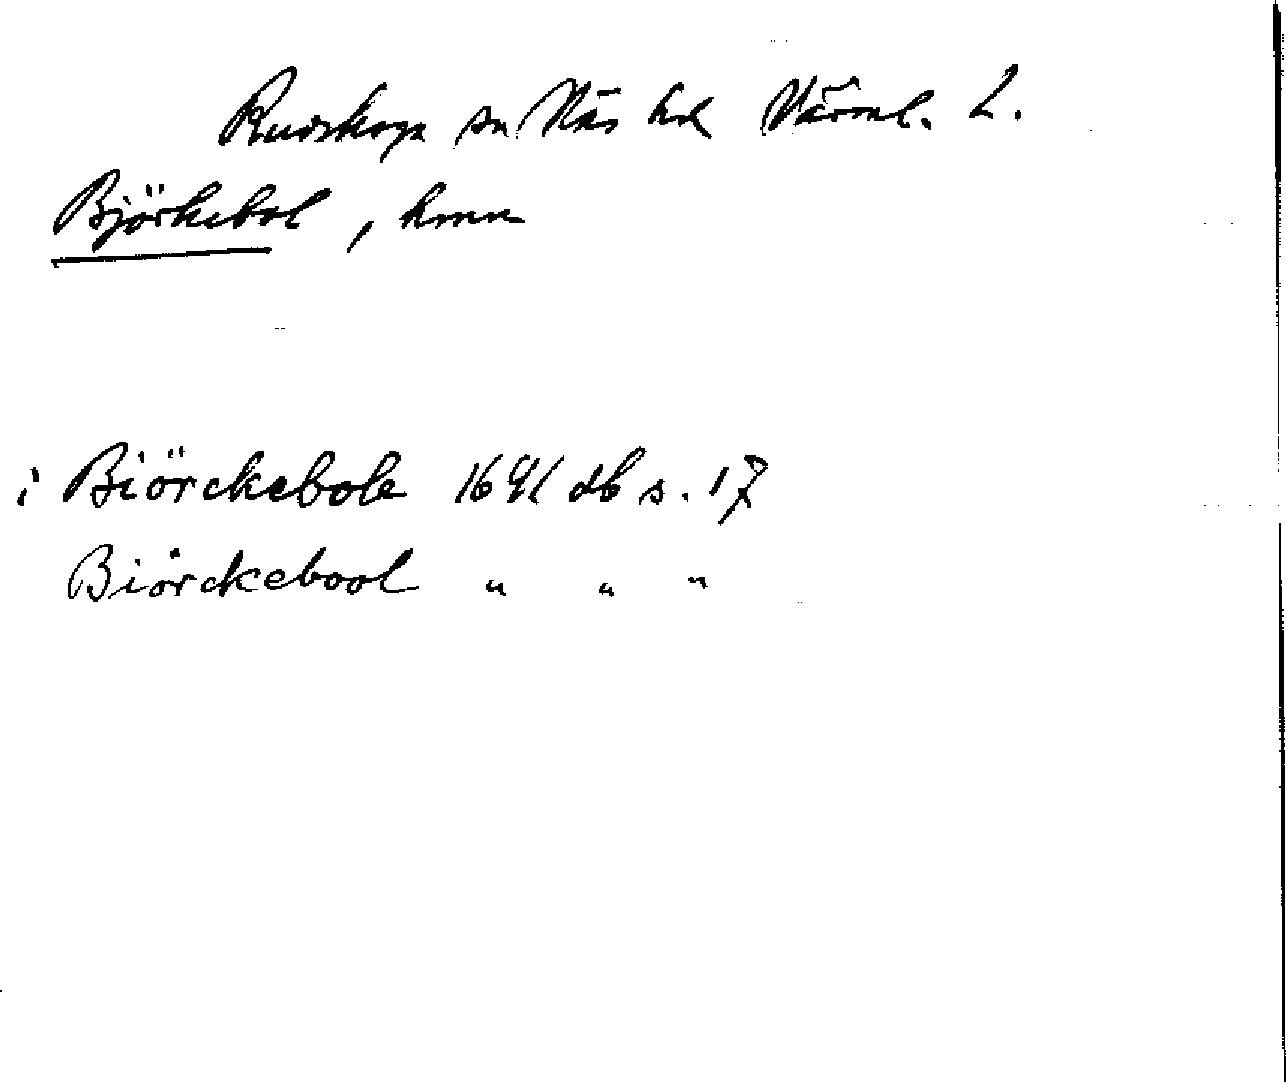 Rudskoga sn Näs hd Värml. l.
Björkebol, hmn
i Biörckebole 1691 db s. 17
Biörckebool " " "